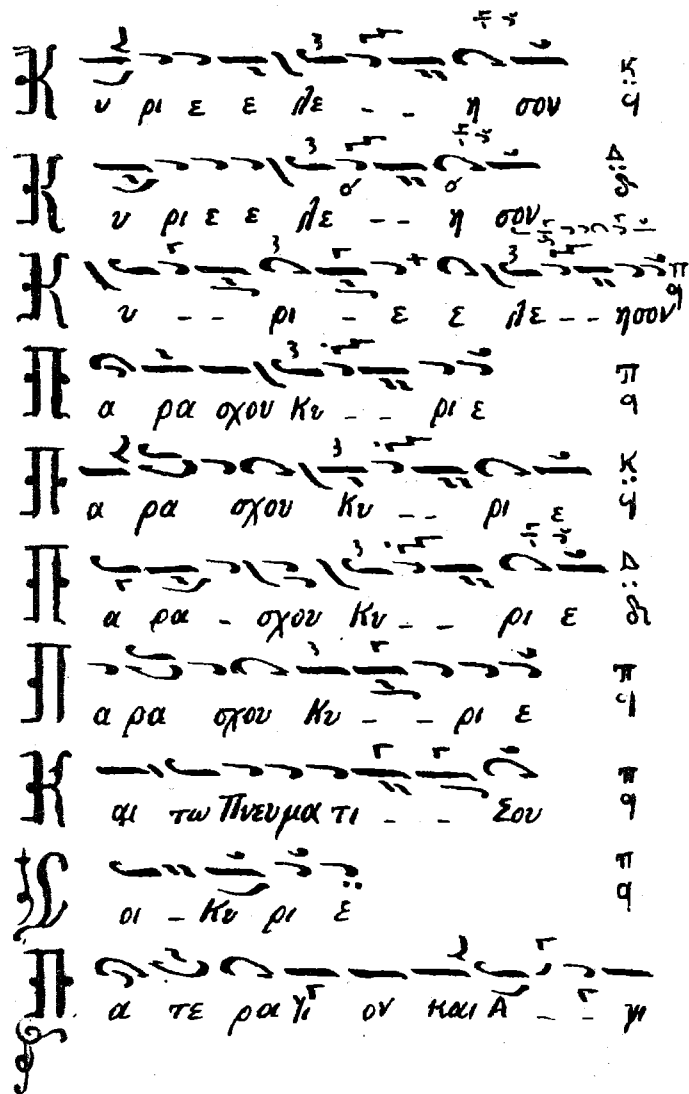 Κυ ρι ε ε λε - - η σον
Κυ ρι ε ε λε - - η σον
Κυ - - ρι - ε ε λε - - ησον
Πα ρα σχου Κυ - - ρι ε
Πα ρα σχου Κυ - - ρι ε
Πα ρα - σχου Κυ - - ρι ε
Πα ρα σχου Κυ - - ρι ε
Και τω Πνευμα τι - - - Σου
Σοι - Κυ ρι ε
Πα τε ρα γι ον και Α - - γι